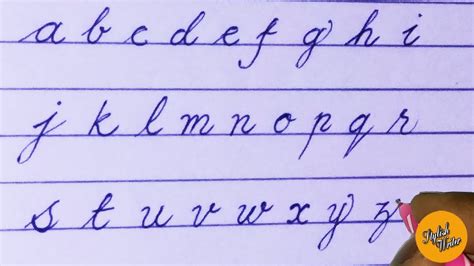 a b c d e f g h i
j k l m n o p q r
s t u v w x y z
Stylish
Writer